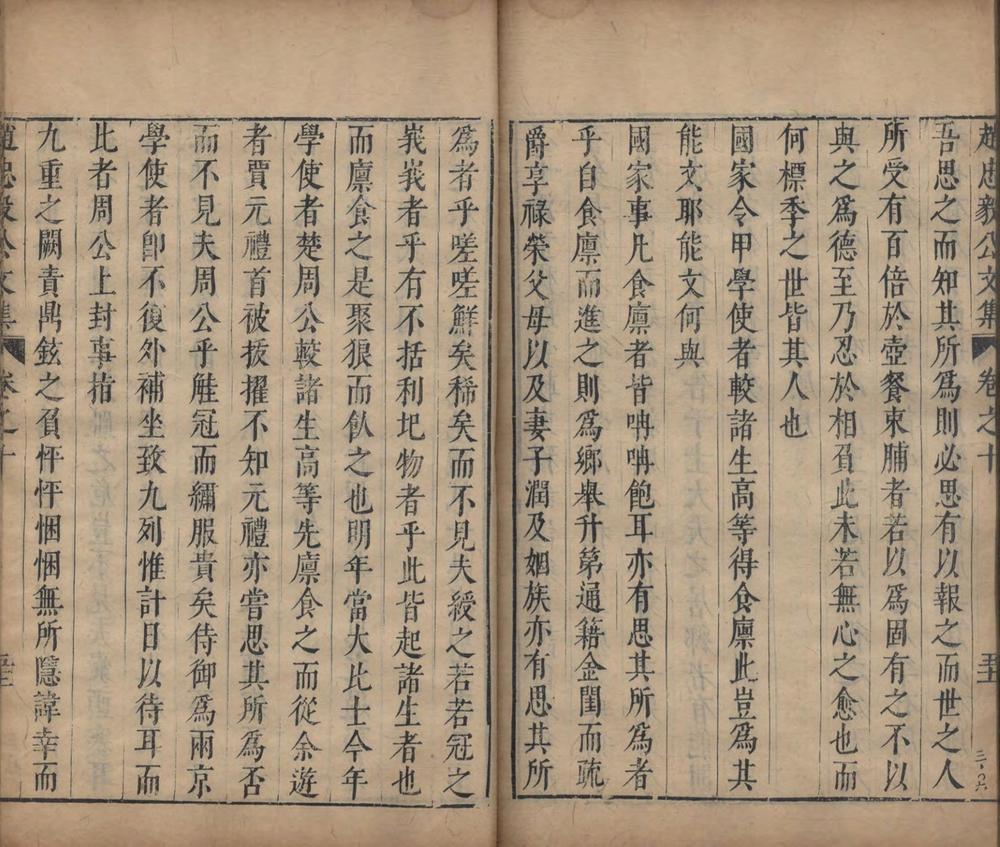 趙忠毅公文集 卷之十
吾思之而知其所爲則必思有以報之而世之人
所受有百倍於壺餐束脯者若以爲固有之不以
與之爲德至乃忍於相負此未若無心之愈也而
何標季之世皆其人也
國家令甲學使者較諸生高等得食廩此豈爲其
能文耶能文何與
國家事凡食廩者皆呥呥飽耳亦有思其所爲者
乎自食廩而進之則爲鄉舉升第通籍金閨而疏
爵享祿榮父母以及妻子潤及姻族亦有思其所
爲者乎嗟嗟鮮矣稀矣而不見夫綬之若若冠之
峩峩者乎有不括利圯物者乎此皆起諸生者也
而廩食之是聚狼而飤之也明年當大比士今年
學使者楚周公較諸生高等先廩食之而從余遊
者賈元禮首被拔擢不知元禮亦嘗思其所爲否
而不見夫周公乎觟冠而繡服貴矣侍御爲兩京
學使者卽不復外補坐致九列惟計日以待耳而
比者周公上封事指
九重之闕責鼎鉉之負怦怦悃悃無所隱諱幸而
趙忠毅公文集 卷之十